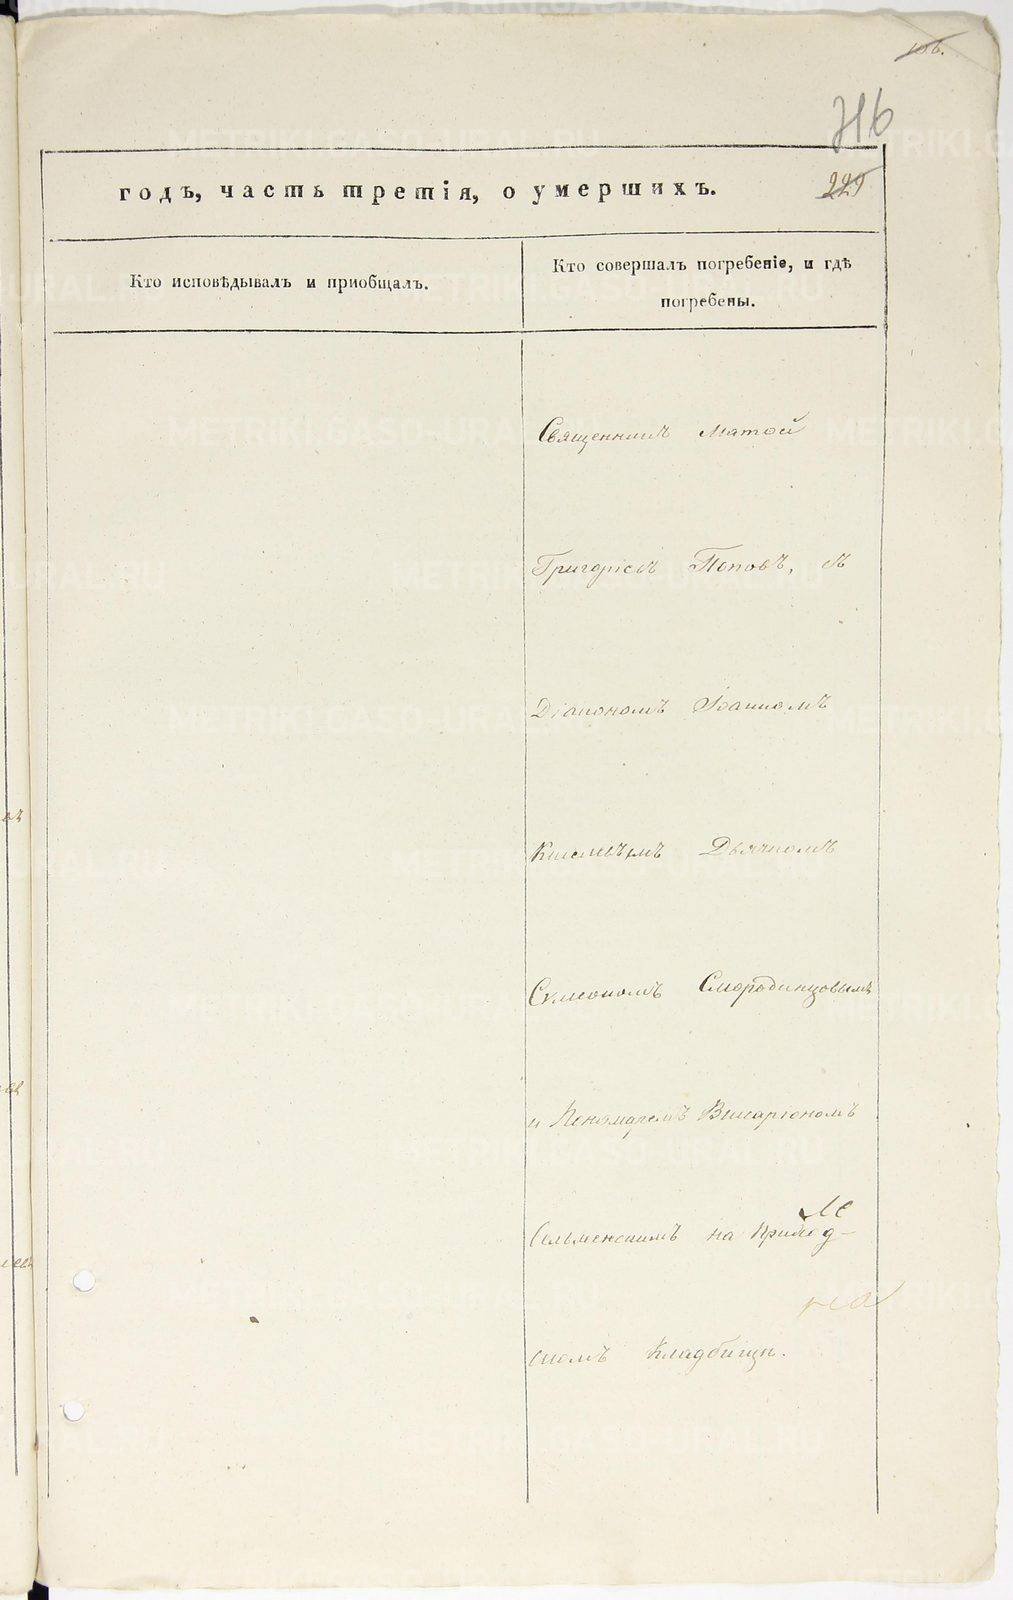 106.
316
годъ, часть третія, о умершихъ.
229
Кто исповѣдывалъ и приобщалъ.
Кто совершалъ погребеніе, и гдѣ
погребены.
Священникъ
Григорьевъ Поповъ, съ
Діакономъ Іоанномъ
Дьячкомъ
Сѵмеономъ Смородинцовымъ
и Пономаремъ Виссаріономъ
Сельменскимъ на Приход-
скомъ Кладбищѣ.
METRIKI.GASO-URAL.RU